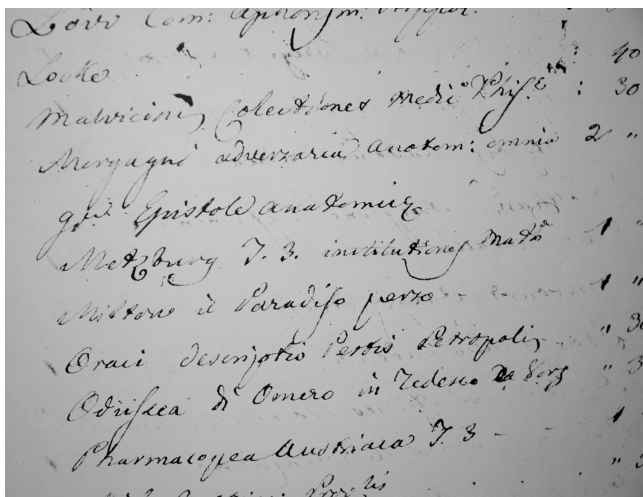 Löw Com: Aphorism: Hippoc:
Locke : 40
Malvicini, Colectiones Medic Phis : 30
Morgagni adverzaria Anatom: omnia 2 "
Epistole anatomice
Metzburg T. 3. institutiones Math 1 "
Miltone il Paradiso perso 1 "
Oraei descriptio Pestis Petropoli, " 30
Odissea di Omero in Tedesco Da "
Pharmacopea Austriaca T. 3 - - 1